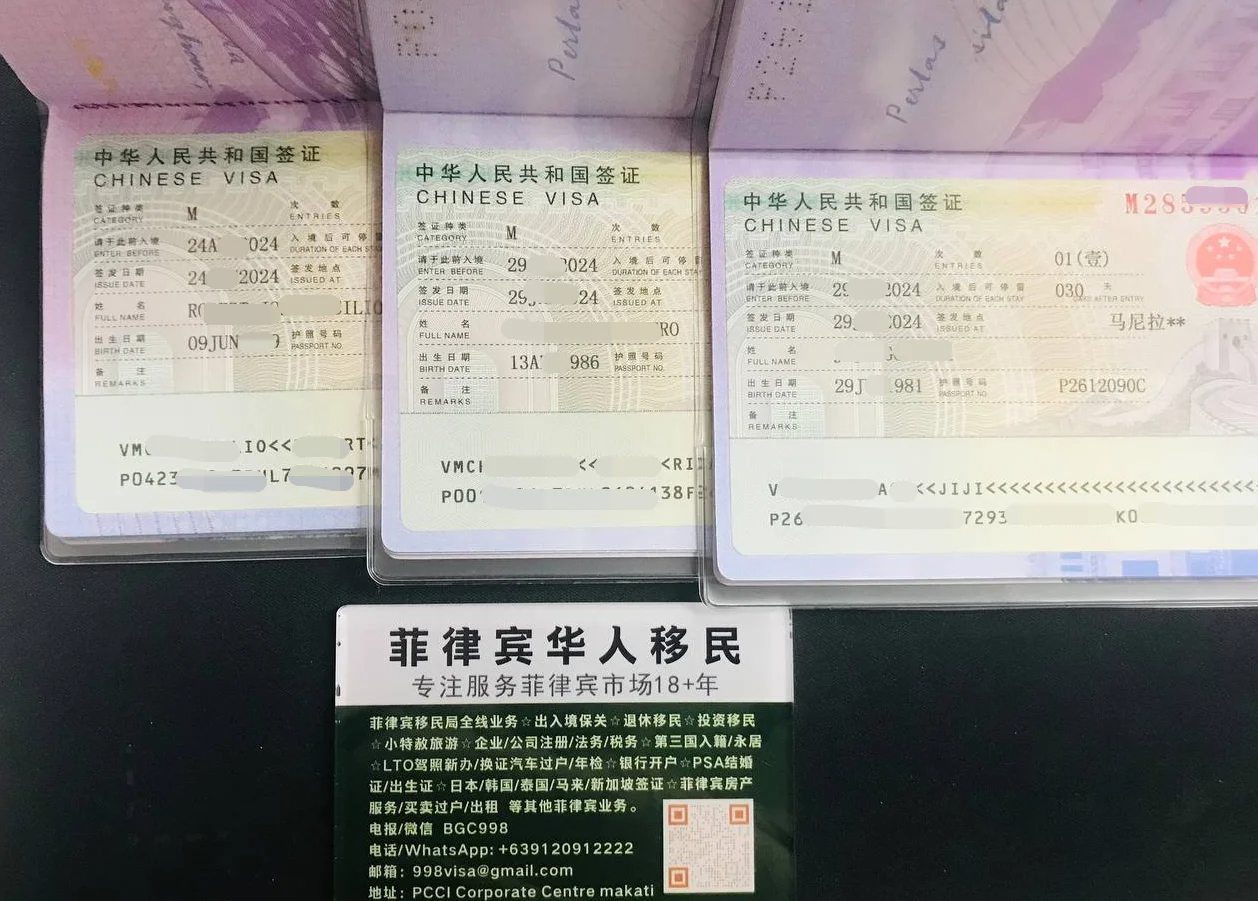 Pertas
Pertas
中华人民共和国签证
CHINESE VISA
签证种类
CATEGORY
M
次 数
ENTRIES
请于此前入境
ENTER BEFORE
24A 024
入境后可停留
DURATION OF EACH STA
签发日期
ISSUE DATE
24 2024
签发地点
ISSUED AT
姓 名
FULL NAME
ILIO
出生日期
BIRTH DATE
09JUN 9
护照号码
PASSPORT NO.
备 注
REMARKS
IO<< RT<
PO423
中华人民共和国签证
CHINESE VISA
签证种类
CATEGORY
M
次 数
ENTRIES
请于此前入境
ENTER BEFORE
29 2024
入境后可停留
DURATION OF EACH STA
签发日期
ISSUE DATE
29 24
签发地点
ISSUED AT
姓 名
FULL NAME
RO
出生日期
BIRTH DATE
13A 986
护照号码
PASSPORT NO.
备 注
REMARKS
VMC << <RI
P00
中华人民共和国签证
CHINESE VISA
M285
签证种类
CATEGORY
M
次 数
ENTRIES
01(壹)
请于此前入境
ENTER BEFORE
29 2024
入境后可停留
DURATION OF EACH STAY
030
天
DAYS AFTER ENTRY
签发日期
ISSUE DATE
29 2024
签发地点
ISSUED AT
马尼拉**
姓 名
FULL NAME
出生日期
BIRTH DATE
29J 981
护照号码
PASSPORT NO.
P2612090C
备 注
REMARKS
V A <<JIJI<<<<<<<<<<<<<<<<<<<<<<<<<
P26 7293 KO
菲律宾华人移民
专注服务菲律宾市场18+年
菲律宾移民局全线业务☆出入境保关☆退休移民☆投资移民
☆小特赦旅游☆企业/公司注册/法务/税务☆第三国入籍/永居
☆LTO驾照新办/换证汽车过户/年检☆银行开户☆PSA结婚
证/出生证☆日本/韩国/泰国/马来/新加坡签证☆菲律宾房产
服务/买卖过户/出租 等其他菲律宾业务。
电报/微信 BGC998
电话/WhatsApp: +639120912222
邮箱：998visa@gmail.com
地址：PCCI Corporate Centre makati